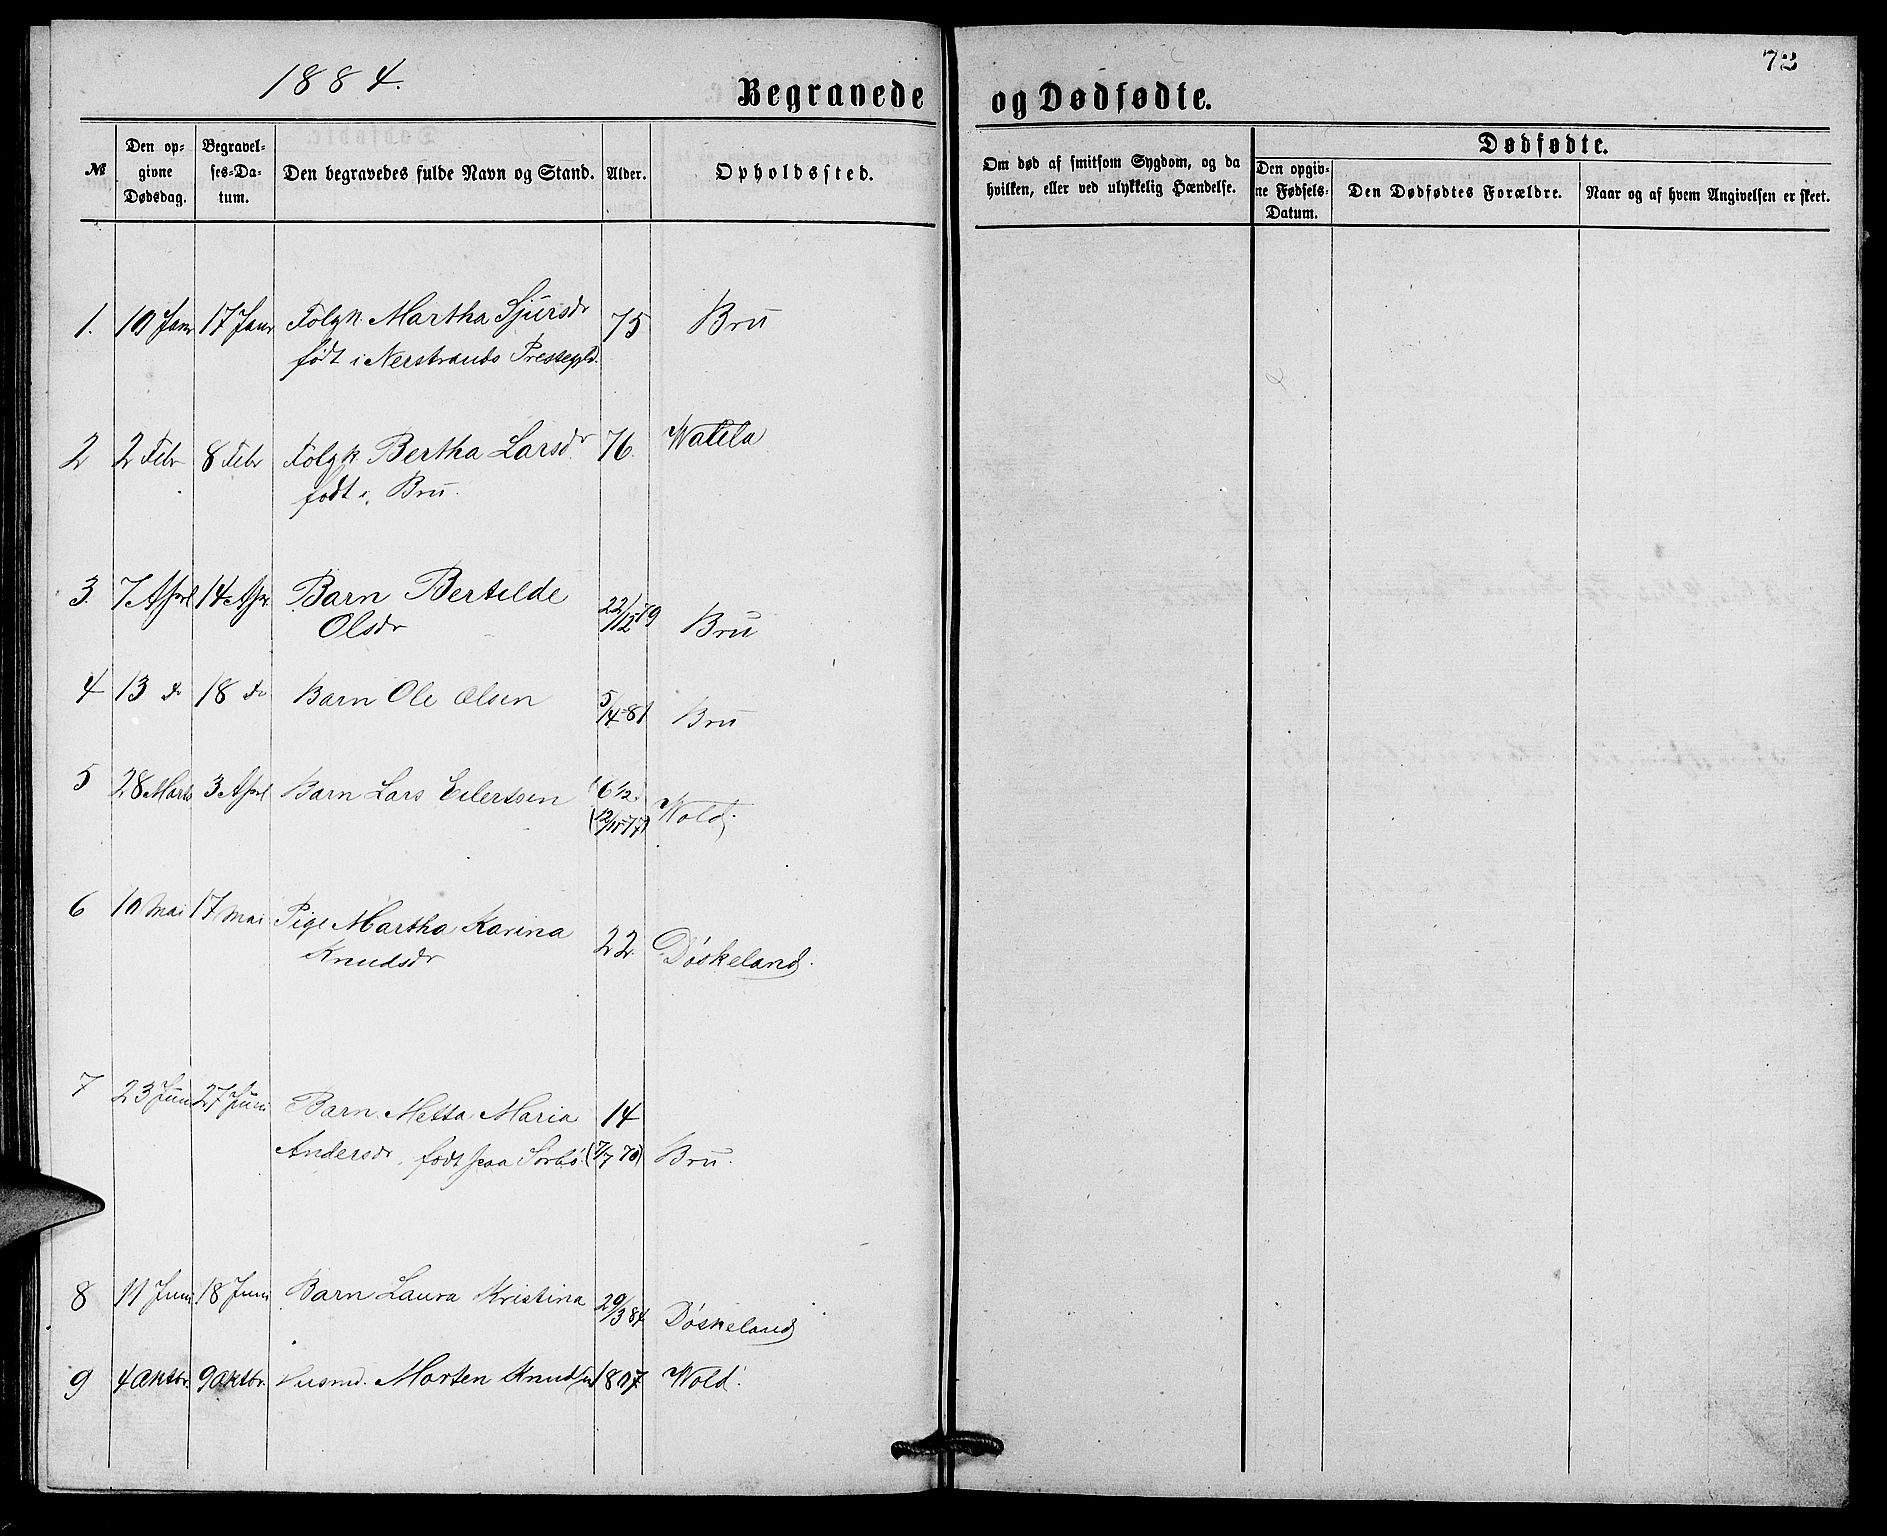 1884.
Begravede og Dødfødte.
72
№
Den opgivne Dødsdag.
Begravelses-Datum.
Den begravedes fulde Navn og Stand.
Alder.
Opholdssted.
Om død af smitsom Sygdom, og da hvilken, eller ved ulykkelig Hændelse.
Dødfødte.
Den opgivne Fødsels-Datum.
Den Dødfødtes Forældre.
Naar og af hvem Angivelsen er skeet.
1. 10 Janr 17 Janr Folgk. Martha Sjursdr 75 Bru
født i Nerstrands Prestegjld.
2 2 Febr 8 Febr Folgk Bertha Larsdr 76. Watila
født i Bru.
3. 7 April 14 Apr. Barn Bertilde 22/12 79 Bru
Olsdr
4 13 do 18 do Barn Ole Olsen 5/4-81 Bru
5 28 Marts 3 April Barn Lars Eilertsen 6 1/2 Wold.
6 10 Mai 17 Mai Pige Martha Karina 22. Døskeland.
Knudsdr
7 23 Juni 27 Juni Barn Metta Maria 14
Andersdr, født paa Sørbø. (7/7 70) Bru.
8 11 Juni 18 Juni Barn Laura Kristina 29/3 84 Døskeland
9 4 Oktbr. 9 Oktbr. Husmd. Morten Knudsen 1807. Wold.